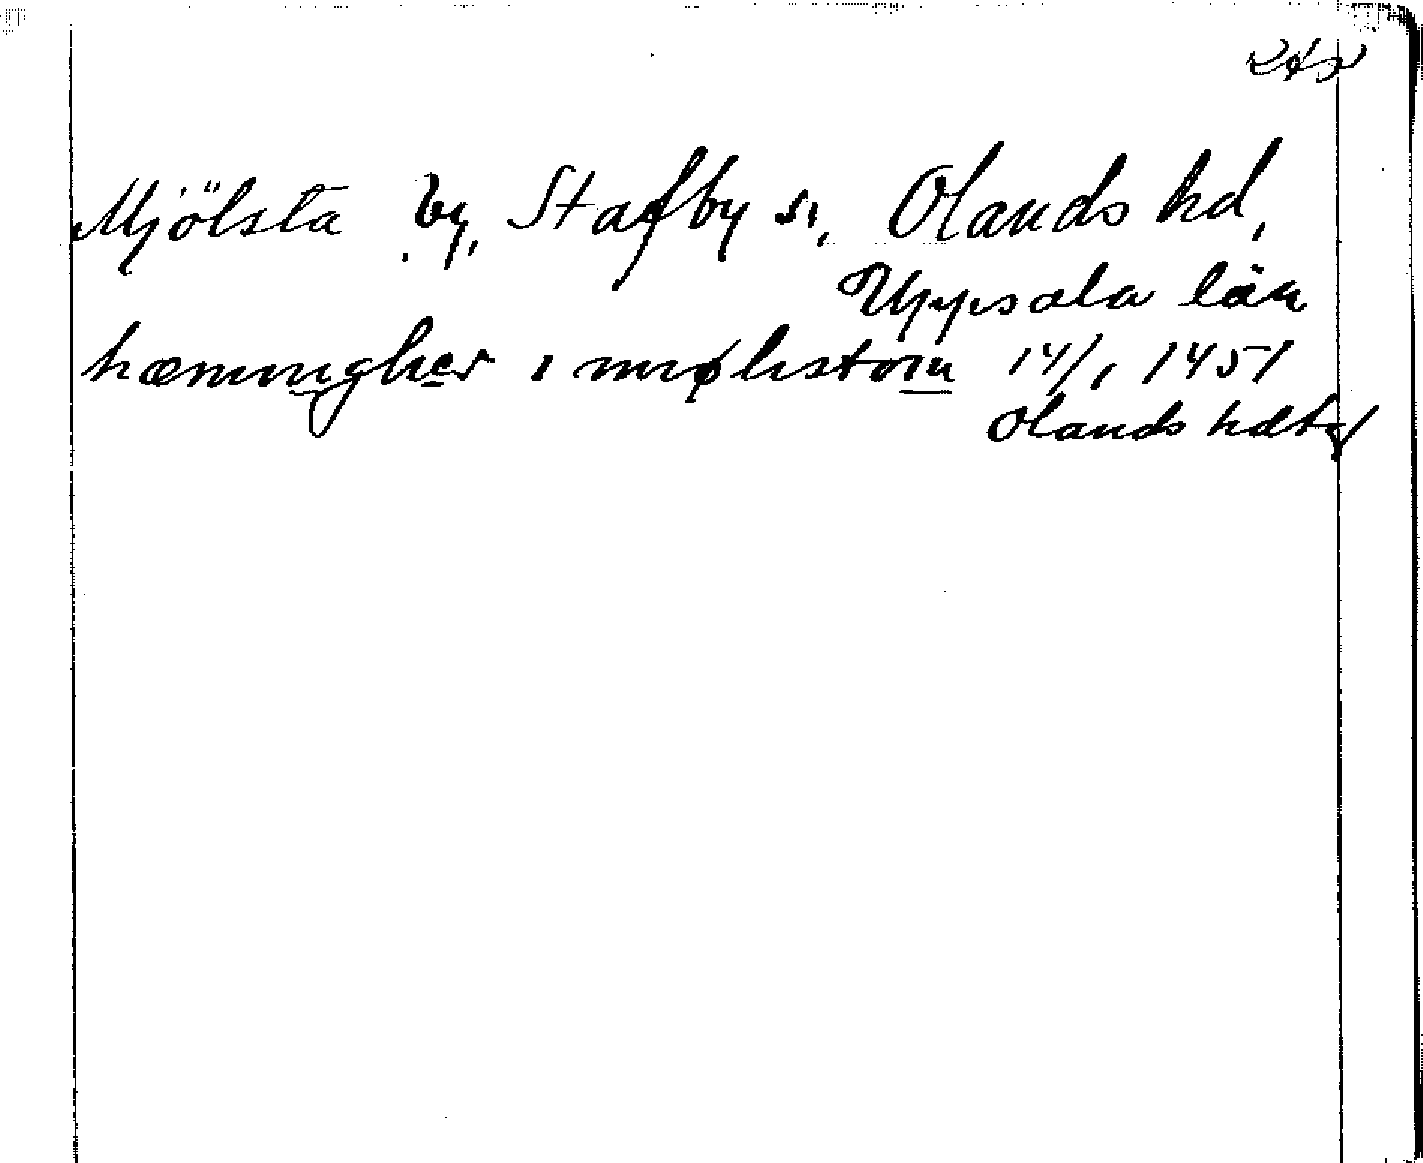 Mjölsta by, Stafby sn, Olands hd,
Uppsala län
hæmmigher i mølistom 14/1 1451
Olands hdtg